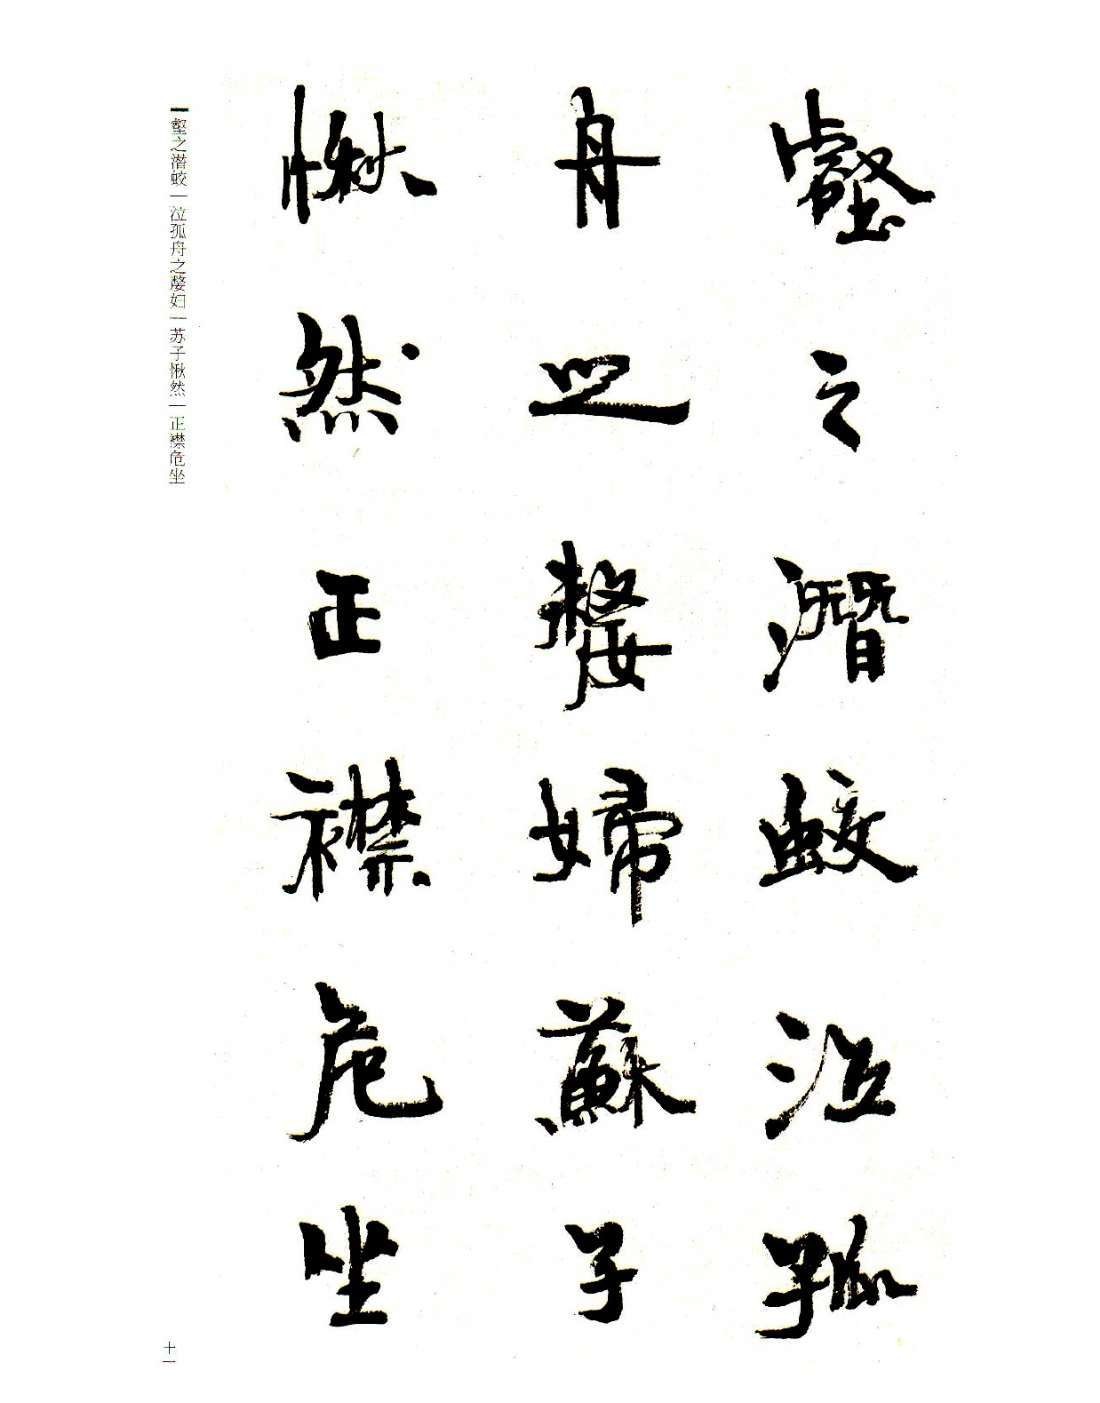 壑之潛蛟泣孤
舟之嫠婦蘇子
愀然正襟危坐
壑之潜蛟｜泣孤舟之嫠妇｜苏子愀然｜正襟危坐｜
十一